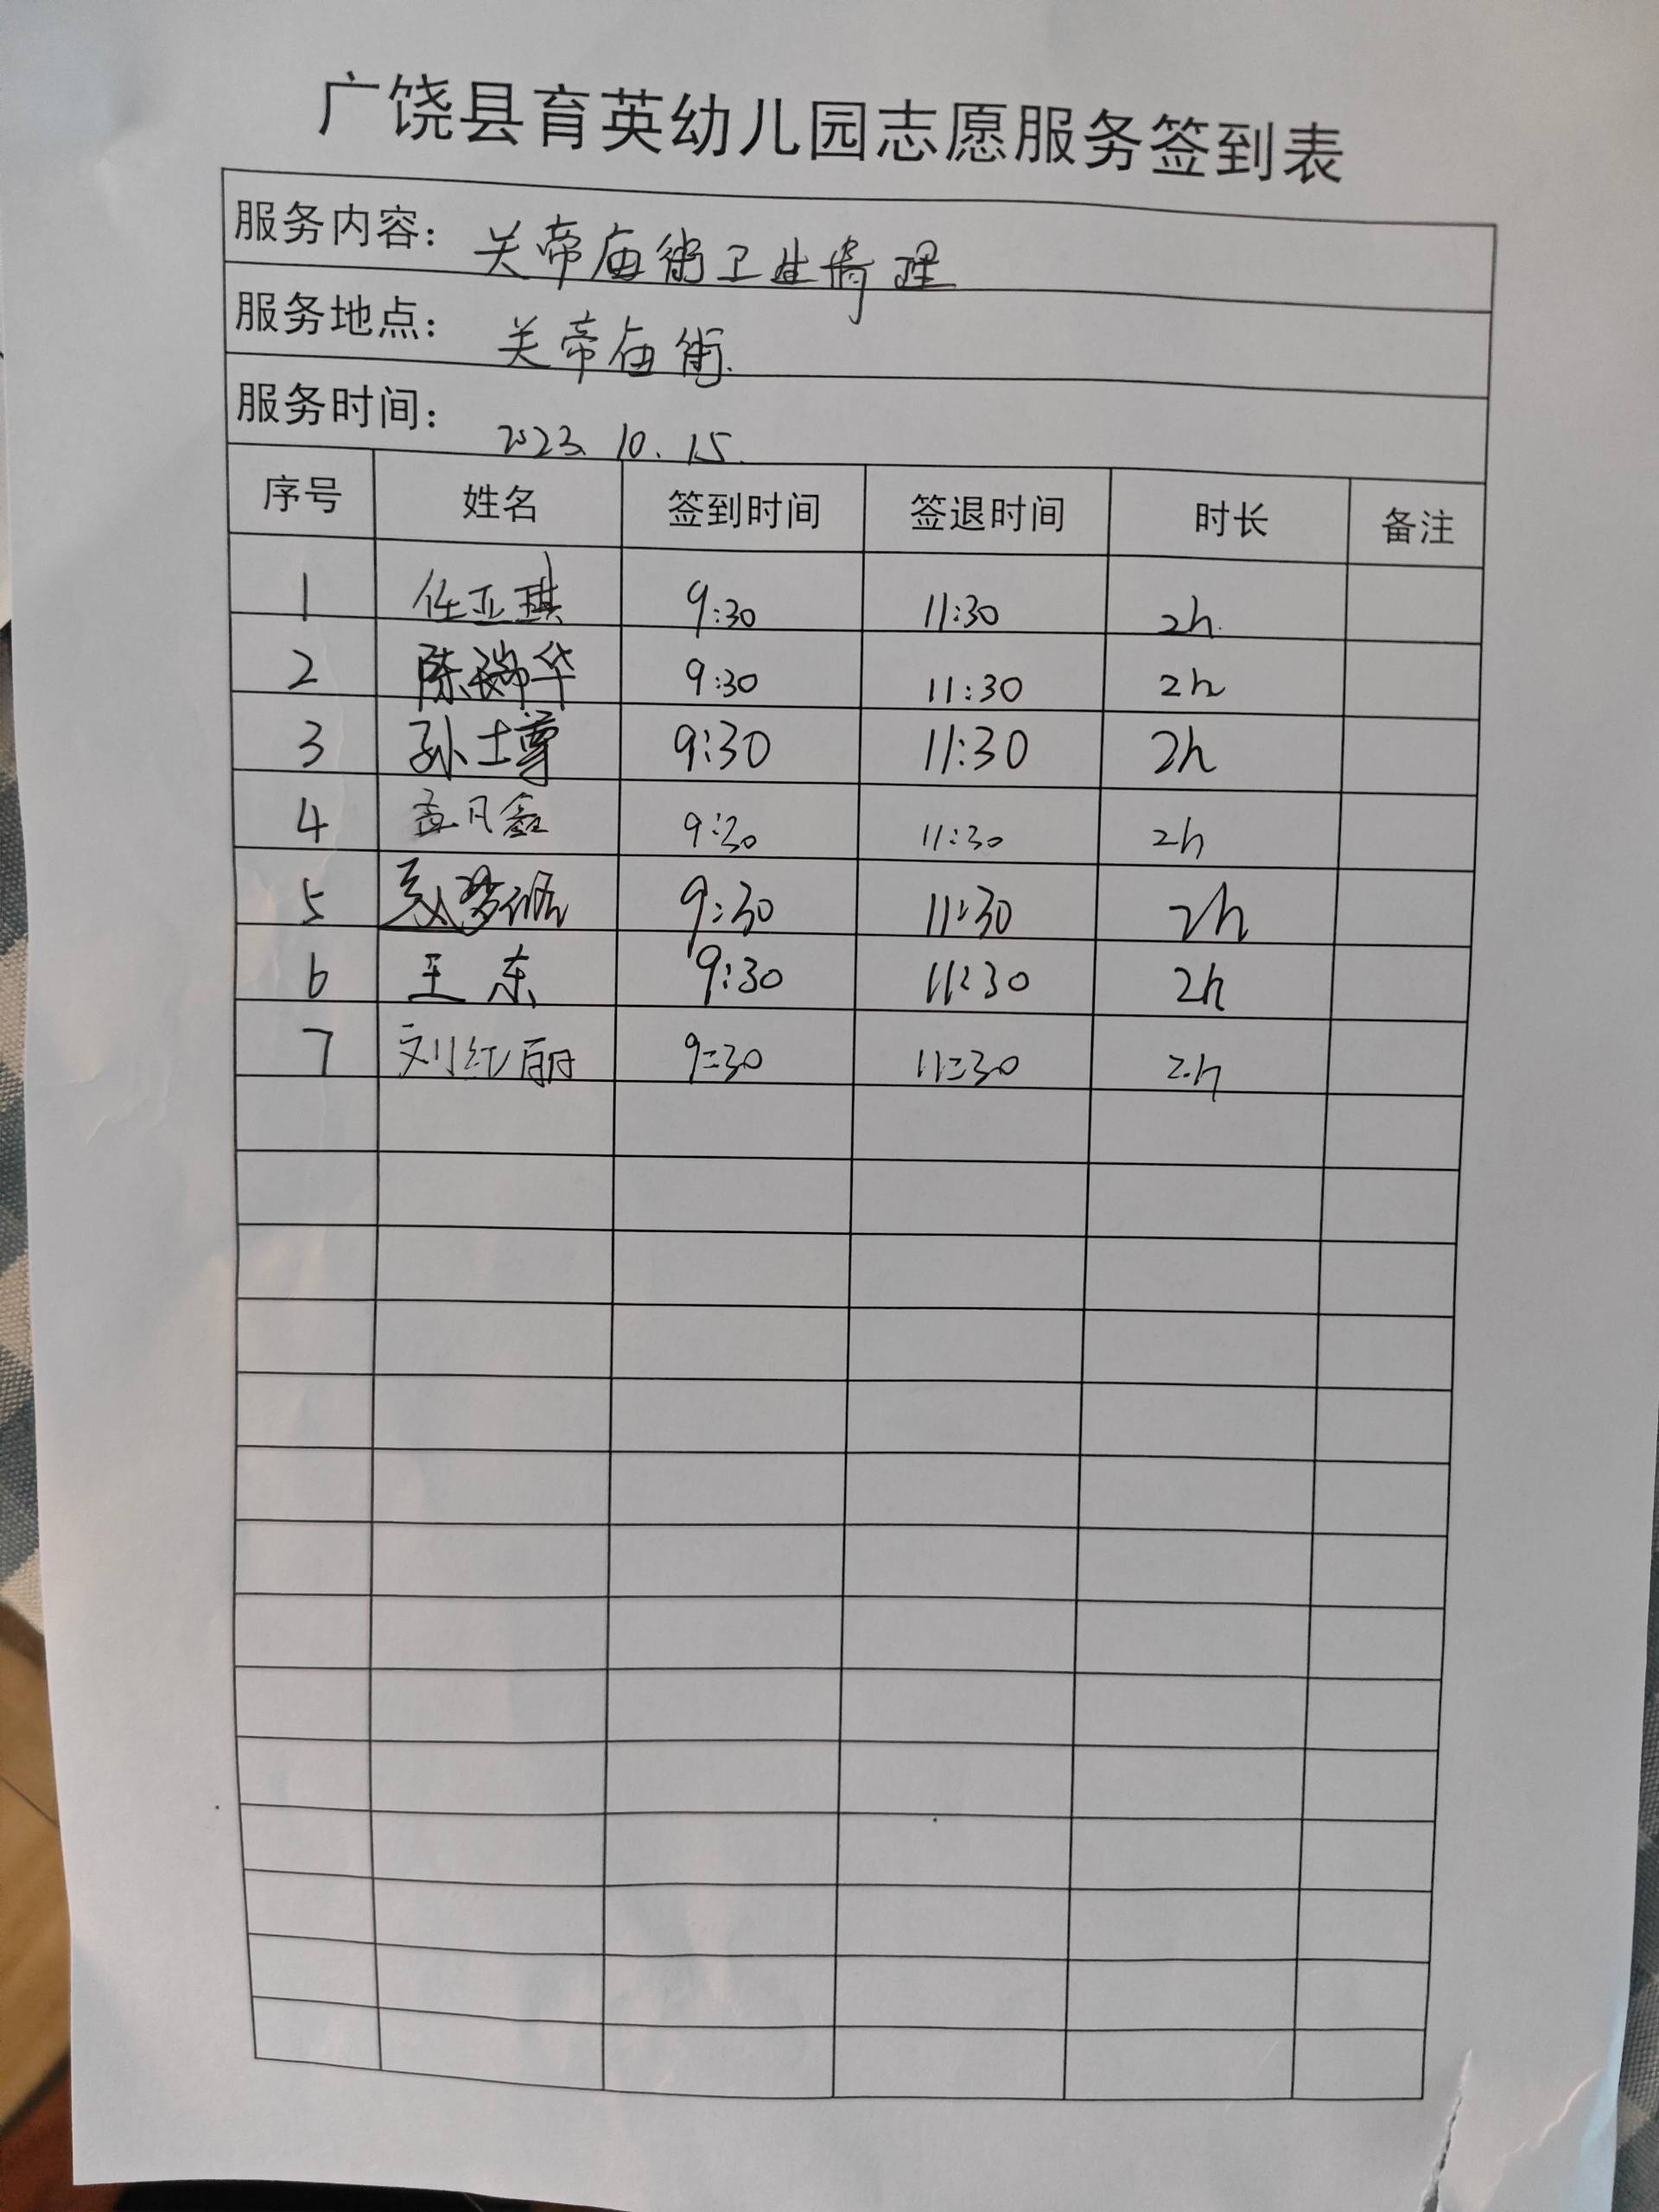 广饶县育英幼儿园志愿服务签到表
服务内容： 关帝庙街卫生清理
服务地点： 关帝庙街.
服务时间： 2023. 10. 15.
序号 姓名 签到时间 签退时间 时长 备注
1 任亚琪 9:30 11:30 2h.
2 陈瑞华 9:30 11:30 2h
3 孙士尊 9:30 11:30 2h
4 孟凡鑫 9:30 11:30 2h
5 9:30 11:30 2h
6 王东 9:30 11:30 2h
7 刘红丽 9:30 11:30 2h